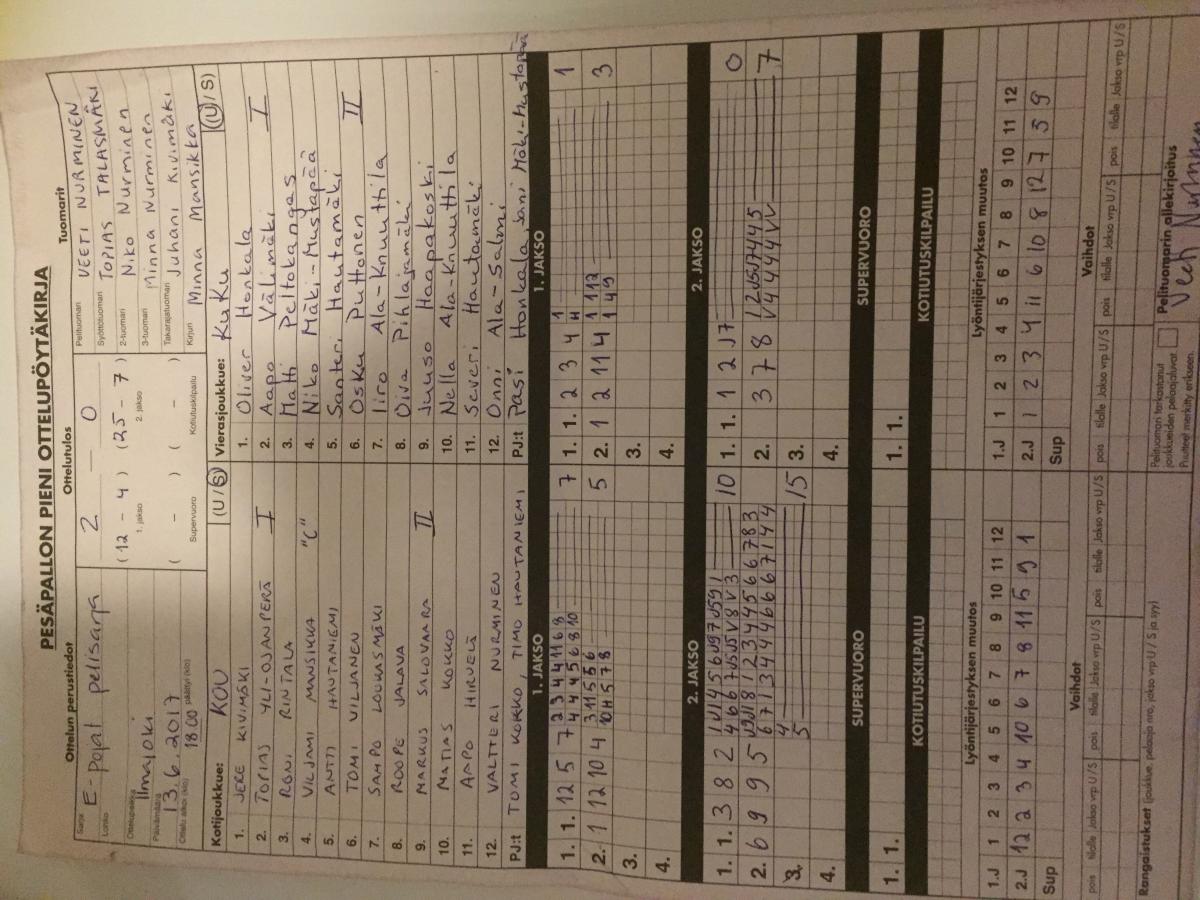 PESÄPALLON PIENI OTTELUPÖYTÄKIRJA
Ottelun perustiedot
Ottelutulos
Tuomarit
Sarja
E-pojat pelisarja
Lohko
Ottelupaikka
Ilmajoki
Päivämäärä
13.6.2017
Ottelu alkoi (klo)
18.00
päättyi (klo)
2 — 0
(12 - 4) (25 - 7)
1. jakso
2. jakso
( - ) ( - )
Supervuoro
Kotiutuskilpailu
Pelituomari VEETI NURMINEN
Syöttötuomari TOPIAS TALASMÄKI
2-tuomari Niko Nurminen
3-tuomari Minna Nurminen
Takarajatuomari Juhani Kivimäki
Kirjuri Minna Mansikka
Kotijoukkue: KOU (U / S)
1. JERE KIVIMÄKI
2. TOPIAS YLI-OJANPERÄ I
3. RONI RINTALA
4. VILJAMI MANSIKKA "C"
5. ANTTI HAUTANIEMI
6. TOMI VILJANEN
7. SAMPO LOUKASMÄKI
8. ROOPE JALAVA
9. MARKUS SALOVAARA II
10. MATIAS KOKKO
11. AAPO HIRVELÄ
12. VALTTERI NURMINEN
PJ:t TOMI KOKKO, TIMO HAUTANIEMI
Vierasjoukkue: KuKu (U / S)
1. Oliver Honkala
2. Aapo Välimäki I
3. Matti Peltokangas
4. Niko Mäki-Mustapää
5. Santeri Hautamäki
6. Osku Puttonen II
7. Iiro Ala-Knuuttila
8. Oiva Pihlajamäki
9. Juuso Haapakoski
10. Nella Ala-Knuuttila
11. Severi Hautamäki
12. Onni Ala-Salmi
PJ:t Pasi Honkala, Jani Mäki-Mustapää
1. JAKSO
1. 1. 12 5 7
2 3 4 4 11 6 8
4 4 4 5 6 8 10
7
2. 1 12 10 4
3 11 5 5 6
10 H 5 7 8
5
3.
4.
1. JAKSO
1. 1. 2 3 4
1
H
1
2. 1 2 11 4
1 1 12
1 4 9
3
3.
4.
2. JAKSO
1. 1. 3 8 2
10
2. 6 9 9 5
3. 4
5
15
4.
2. JAKSO
1. 1. 1 2 J7
0
2. 3 7 8
7
3.
4.
SUPERVUORO
1. 1.
SUPERVUORO
1. 1.
KOTIUTUSKILPAILU
KOTIUTUSKILPAILU
Lyöntijärjestyksen muutos
1.J 1 2 3 4 5 6 7 8 9 10 11 12
2.J 12 2 3 4 10 6 7 8 11 5 9 1
Sup
Lyöntijärjestyksen muutos
1.J 1 2 3 4 5 6 7 8 9 10 11 12
2.J 1 2 3 4 11 6 10 8 12 7 5 9
Sup
Vaihdot
pois tilalle Jakso vrp U / S pois tilalle Jakso vrp U / S pois tilalle Jakso vrp U / S
Vaihdot
pois tilalle Jakso vrp U / S pois tilalle Jakso vrp U / S pois tilalle Jakso vrp U / S
Rangaistukset (joukkue, pelaaja nro, jakso vrp U / S ja syy)
Pelituomari tarkastanut
joukkueiden pelaajaluvat
Puutteet merkitty erikseen.
Pelituomarin allekirjoitus
Veeti Nurminen